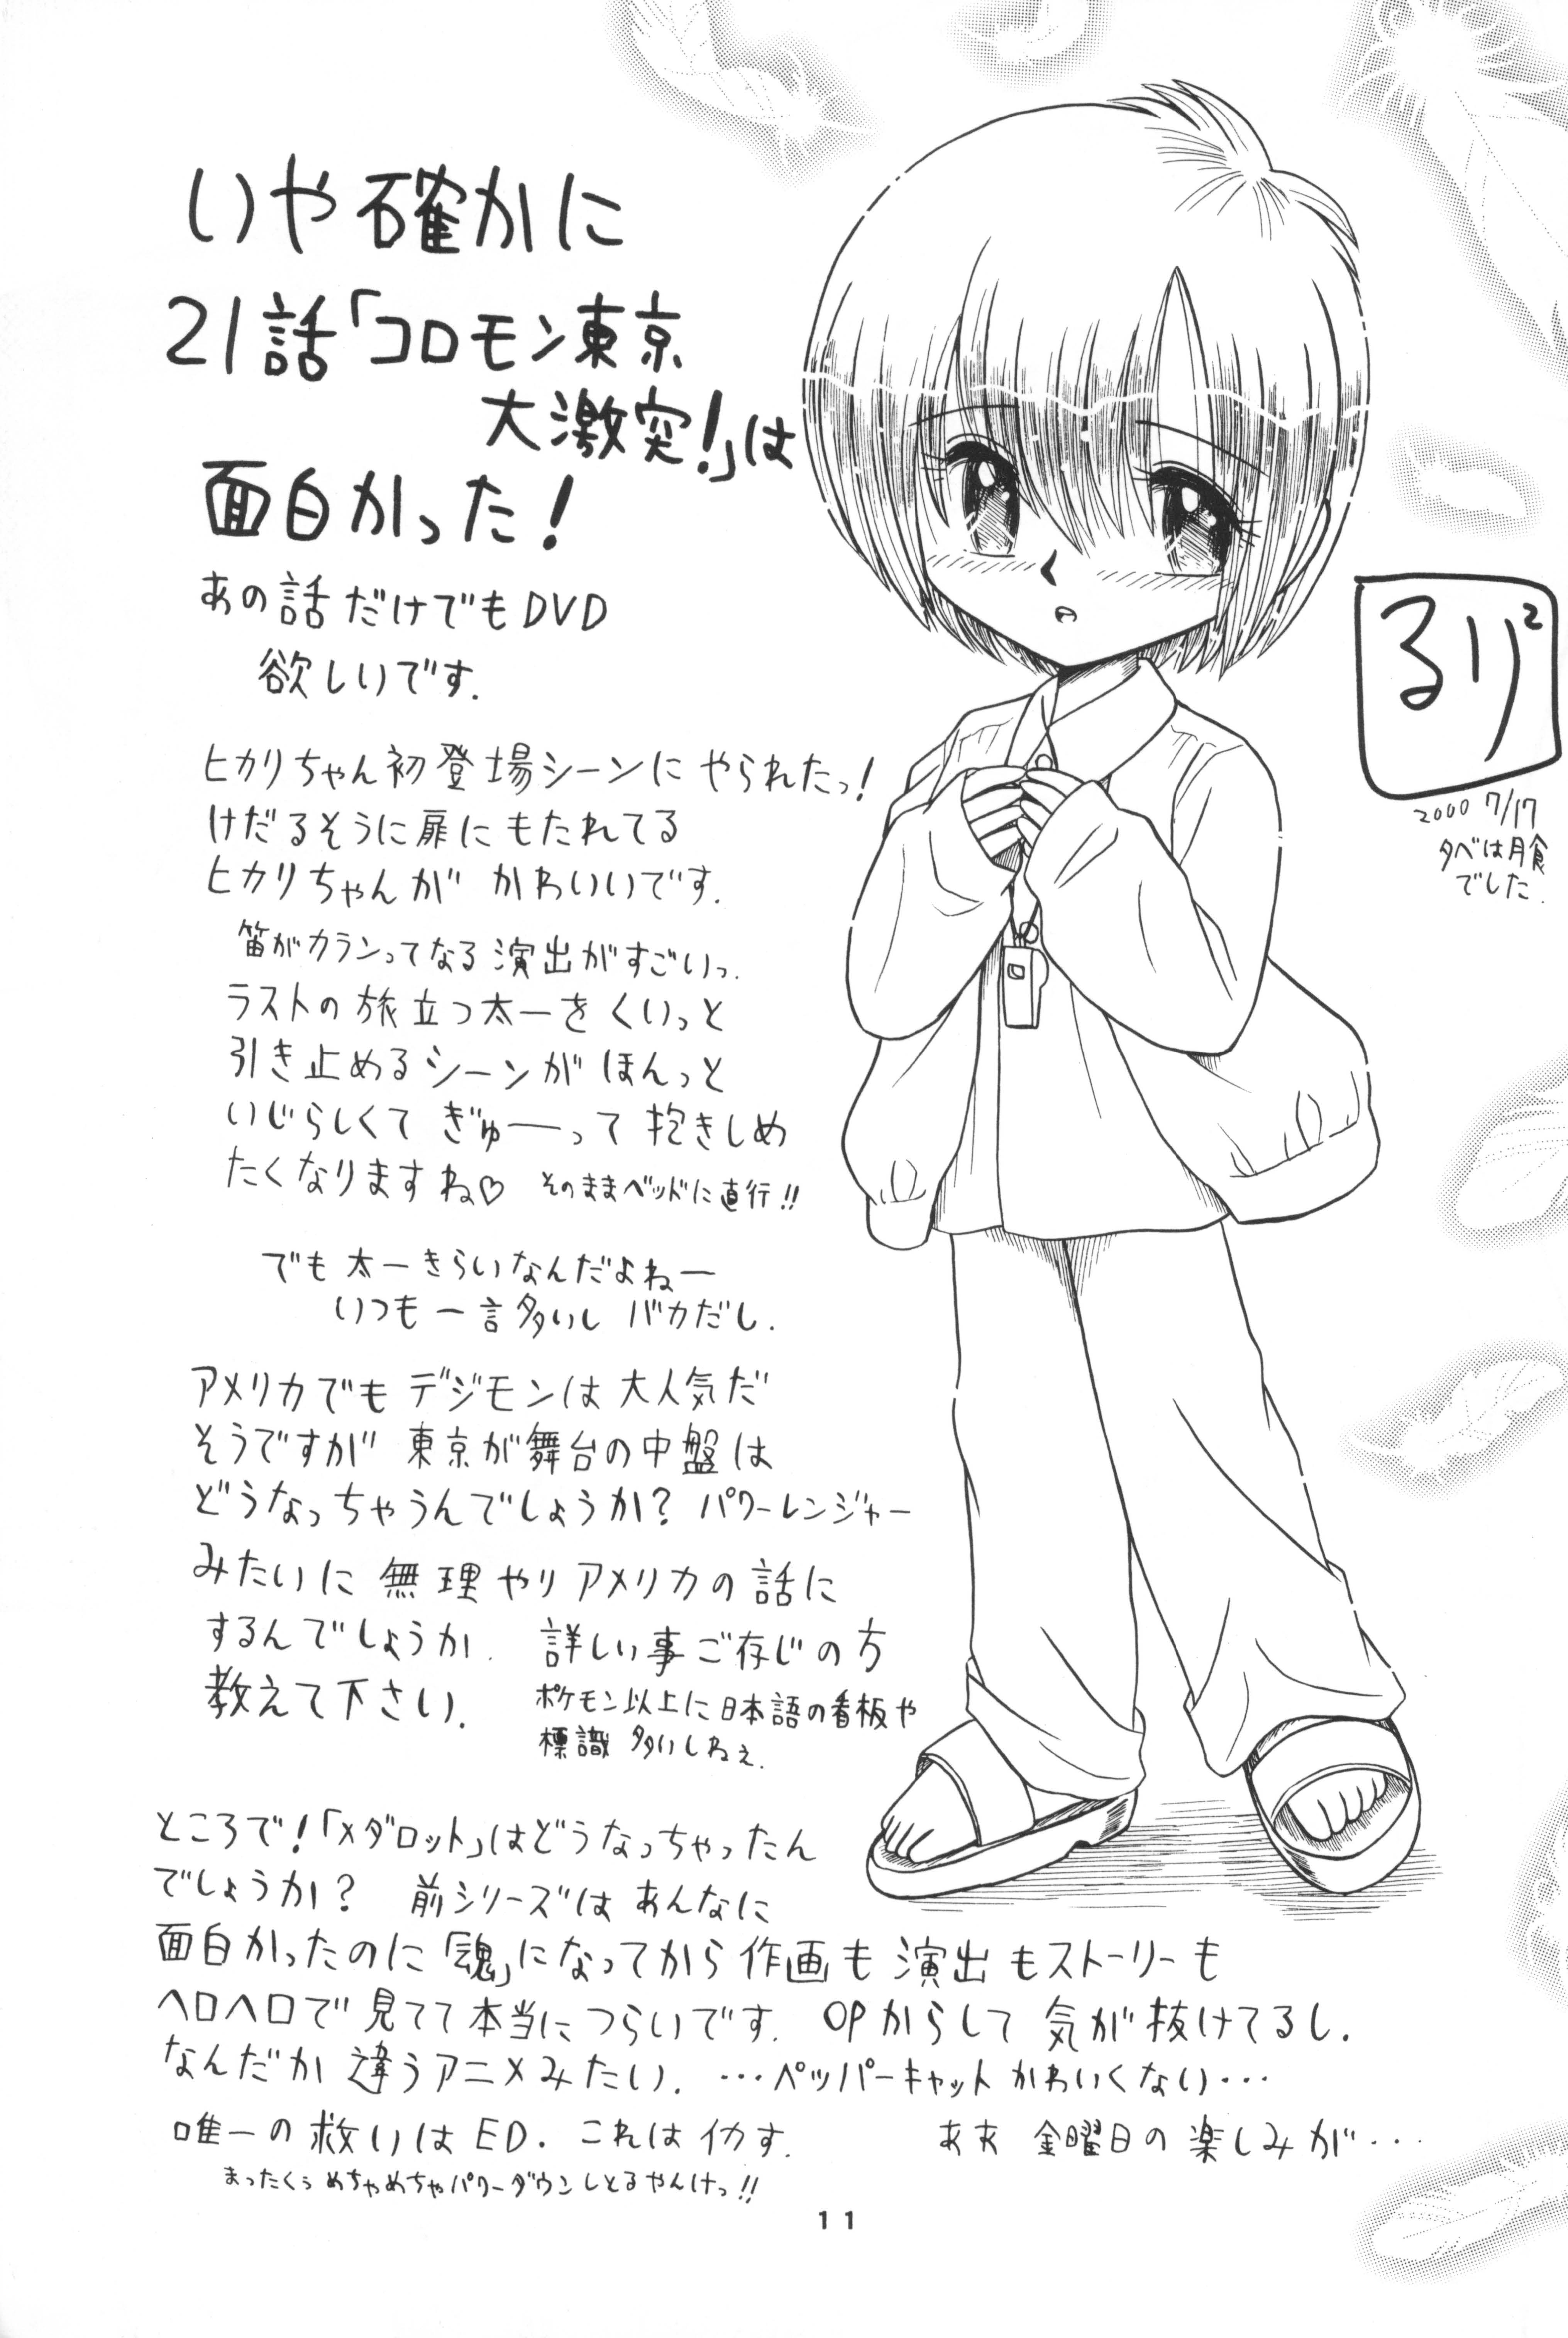 いや確かに
21話「コロモン東京
大激突!」は
面白かった!
あの話だけでもDVD
欲しいです.
ヒカリちゃん初登場シーンにやられたっ!
けだるそうに扉にもたれてる
ヒカリちゃんが かわいいです.
笛がカランってなる演出がすごいっ.
ラストの旅立つ太一をくいっと
引き止めるシーンが ほんっと
いじらしくて ぎゅーって抱きしめ
たくなりますね♡ そのままベッドに直行!!
でも太一きらいなんだよねー
いつも一言多いし バカだし.
アメリカでも デジモンは大人気だ
そうですが 東京が舞台の中盤は
どうなっちゃうんでしょうか? パワーレンジャー
みたいに 無理やりアメリカの話に
するんでしょうか. 詳しい事ご存じの方
教えて下さい.
ポケモン以上に日本語の看板や
標識 多いしねぇ.
ところで!「メダロット」はどうなっちゃったん
でしょうか? 前シリーズは あんなに
面白かったのに「魂」になってから作画も演出もストーリーも
ヘロヘロで見てて本当につらいです. OPからして気が抜けてるし.
なんだか違うアニメみたい. …ペッパーキャットかわいくない…
唯一の救いはED. これはイカす. ああ 金曜日の楽しみが…
まったくぅ めちゃめちゃパワーダウンしとるやんけっ!!
るり²
2000 7/17
夕べは月食
でした.
11